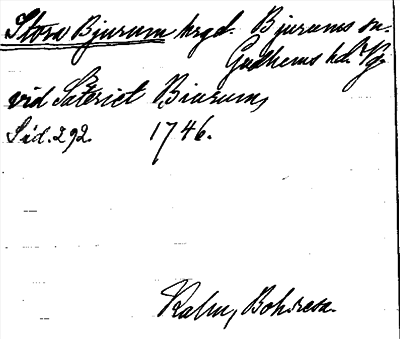 Stora Bjurum hrgd. Bjurums sn.
Gudhems hd. Vg.
vid Säteriet Biurum,
Sid. 292. 1746.
Kalm, Bohusresa.